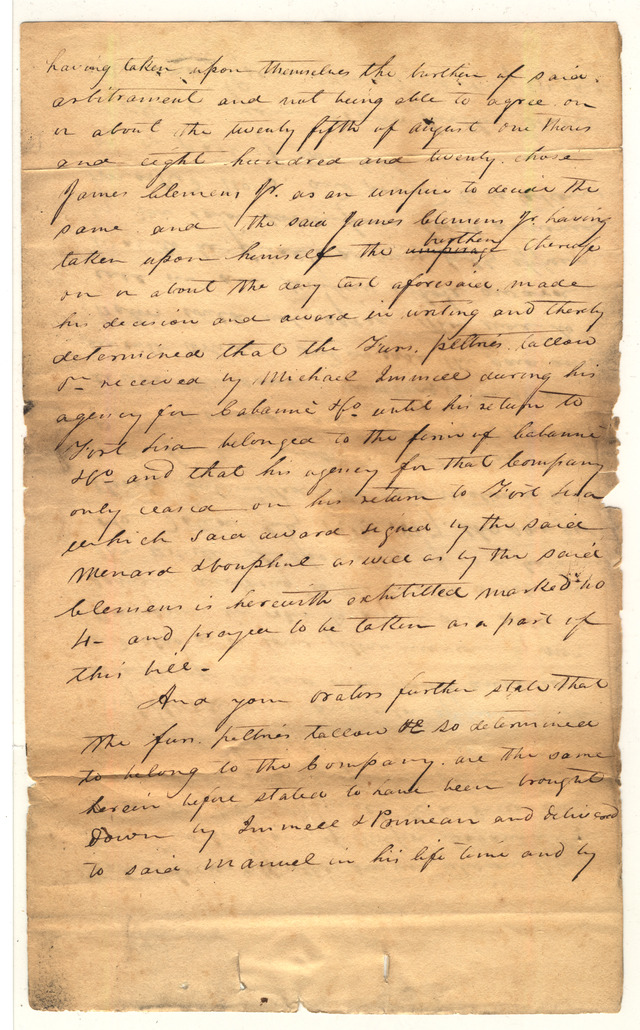 having taken upon themselves the burthen of said
arbitrament and not being able to agree on
or about the twenty fifth of august one thous
and eight hundred and twenty chose
James Clemens Jr. as an umpire to decide the
same and the said James Clemens Jr. having
taken upon himself the umpirage burthen
on or about the day last aforesaid made
his decision and award in writing and thereby
determined that the Furs, peltries, tallow
&c received by Michael Immell during his
agency for Cabanné & Co until his return to
Fort Lisa belonged to the firm of Cabanné
& Co and that his agency for that Company
only ceased on his return to Fort Lisa
which said award signed by the said
Menard & as well as by the said
Clemens is herewith exhibited marked No
4 - and prayed to be taken as a part of
this bill -
And your orators further state that
the furs, peltries tallow &c so determined
to belong to the Company are the same
herein before stated to have been brought
down by Immell & Primeau and delivered
to said Manuel in his life time and by